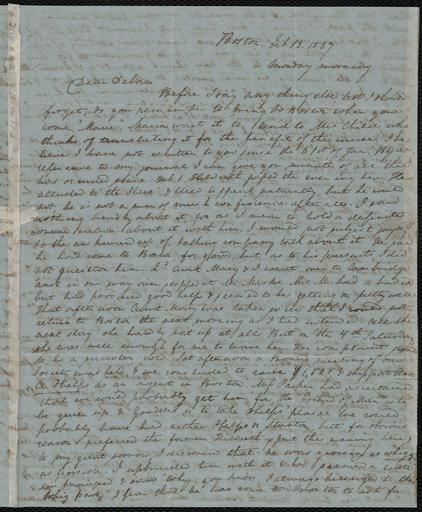 Boston. Feb 13. 1837
Monday morning
Dear Debora
Before I say any thing else lest I should
forget, do you remember to bring to Boston when you
come, Maria wants it to send to Mr Child who
thinks of translating it for the benefit of the cause. I be-
lieve I have not written to you since the 31st of Jan. My
reference to my journal I can give you minutes of all that
has occurred since. Feb. 1 passed the evening here. He
alluded to the Slave. I tried to speak naturally but he would
not, he is not a man of much confidence after all. I said
nothing hardly about it for as I mean to hold a definite
conversation about it with him, I would not subject myself
to the awkwardness of balking company talk about it. He said
he had come to Boston for good, but as to his pursuit, I did
not question him. 2d Aunt Mary & I went over to Cambridge
and on our way over stopped at Mr
but had procured good help & seemed to be getting on pretty well
That afternoon Aunt Mary was taken so ill that I could not
return to Boston the next morning as I had intended. All the
next day she hardly sat up at all. But on the 4th, Saturday
she was well enough for me to leave her. Her complaint
to be a sudden cold. Sat afternoon a Board meeting of our
Society was held & we concluded to raise $1,000 & support
A Phelps as an agent in Boston. Miss Parker had ascertained
that we could probably get him, for the Friend of Man is to
be given up & Goodell is to take Phelps' place. We could
probably have had either Phelps or Stanton, but for obvious
reasons preferred the former. spent the evening here
to my great sorrow I discovered that he was growing as whig
as possible. I upbraided him with it & he seemed a little
embarrassed & said why, you know I always belonged to the
Whig party. I fear that he has come to Boston to act for